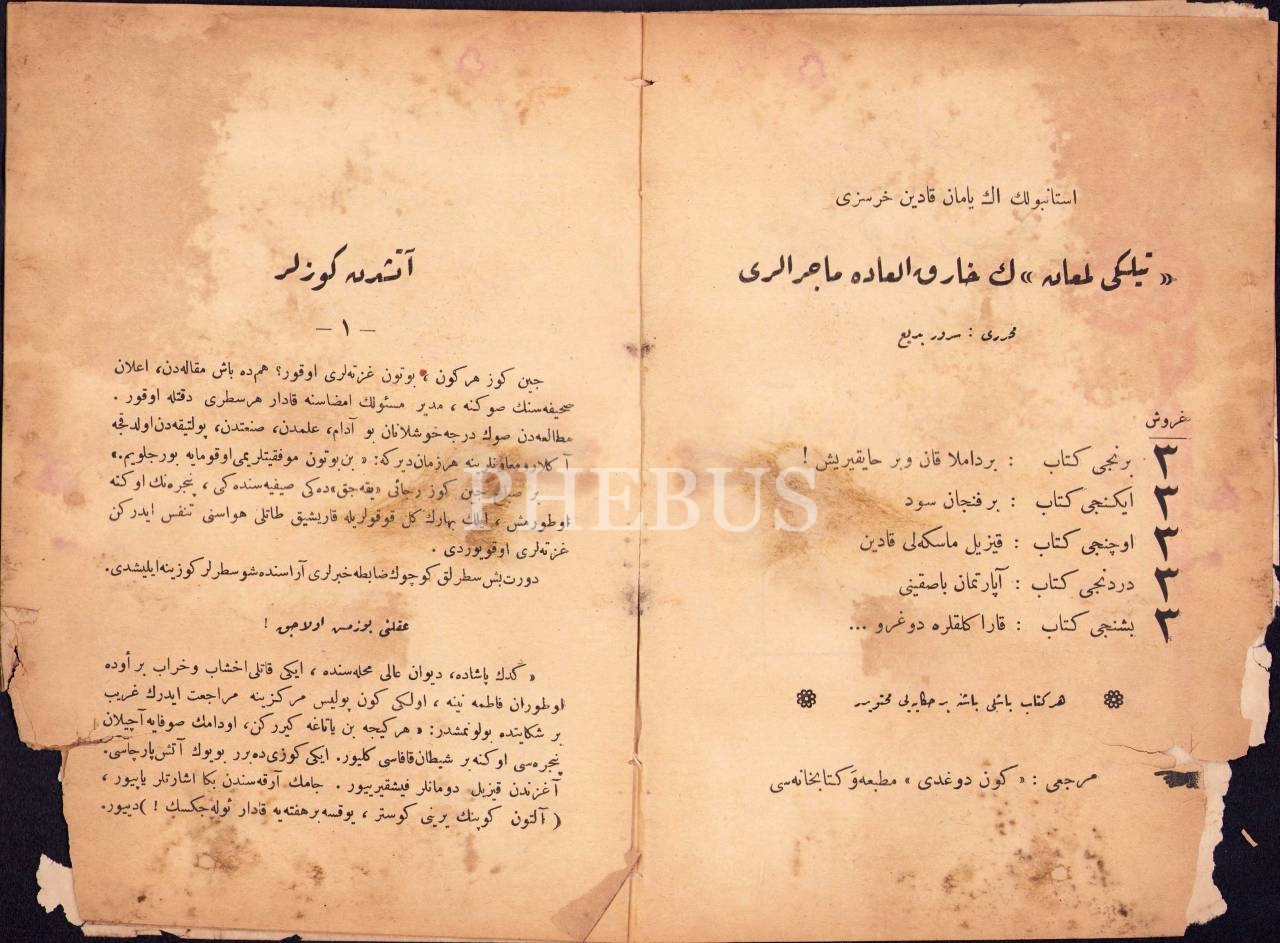 استانبولك اڭ یامان قادین خرسزی
« تیلکی لمعان » ك خارق العاده ماجرالری
محرری : سرور بدیع
غروش
برنجی کتاب : بر داملا قان وبر حایقیریش !
ایکنجی کتاب : بر فنجان سود
اوچنجی کتاب : قیزیل ماسکه‌لی قادین
دردنجی کتاب : آپارتمان باصقینی
بشنجی کتاب : قارا کلقلره دوغرو ...
هر کتاب باشلی باشنه بر حکایه‌یی محتویدر
مرجعی : « کون دوغدی » مطبعه و کتابخانه‌سی
آتشدن کوزلر
— ۱ —
جین کوز هر کون ، بوتون غزته‌لری اوقور؟ هم‌ده باش مقاله‌دن، اعلان
صحیفه‌سنك صوكنه ، مدیر مسئولك امضاسنه قادار هر سطری دقتله اوقور .
مطالعه‌دن صوك درجه خوشلانان بو آدام، علمدن، صنعتدن، پولتیقه‌دن اولدقجه
آ کلار و معاونلرینه هر زمان دیرکه: « بن بوتون موفقیتلریمی اوقومایه بورجلویم.»
بر صباح جین کوز رجائی «بقه‌جق» ده‌کی صیفیه‌سنده‌کی ، پنجره‌نك اوکنه
اوطورمش ، ایلك بهارك کل قوقولریله قاریشیق طاتلی هواسنی تنفس ایدرکن
غزته‌لری اوقویوردی .
دورت بش سطرلق کوچوك ضابطه خبرلری آراسنده شو سطرلر کوزینه ایلیشدی.
عقلنی بوزمش اولاجق !
« کدك پاشاده، دیوان عالی محله‌سنده ، ایکی قاتلی اخشاب وخراب بر أوده
اوطوران فاطمه نینه ، اولکی کون پولیس مرکزینه مراجعت ایدرك غریب
بر شکایتده بولونمشدر: « هر کیجه بن یاتاغه کیررکن، اودامك صوفایه آچیلان
پنجره‌سی اوکنه بر شیطان قافاسی کلیور. ایکی کوزی ده برر بویوك آتش پارچاسی.
آغزندن قیزیل دومانلر فیشقیریور . جامك آرقه‌سندن بكا اشارتلر یاپیور ،
( آلتون کوپنك یرینی کوستر ، یوقسه بر هفته‌یه قادار ئوله جکسك ! ) دییور.
PHEBUS